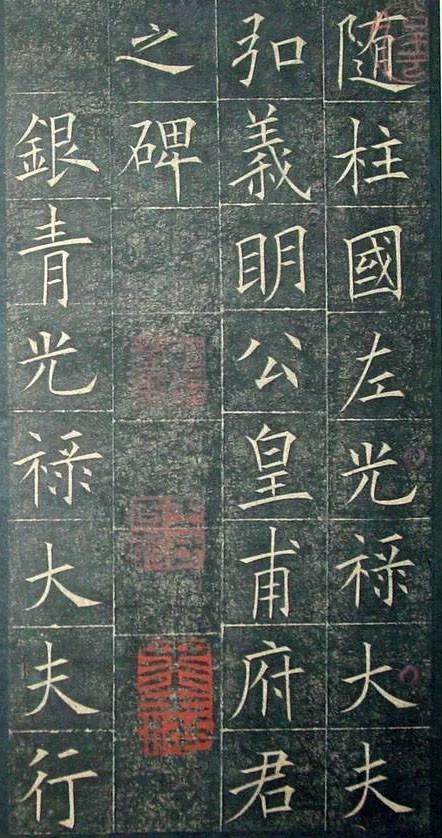 随柱國左光禄大夫
弘義眀公皇甫府君
之碑
銀青光禄大夫行